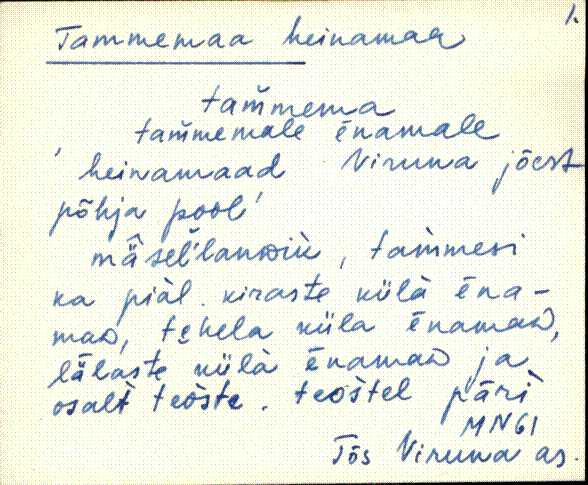 1.
Tammemaa heinamaa
tam̆mema
tam̆memale ēnamale
' heinamaad Viruna jõest
põhja pool '
tam̆mesi
ka piàl . kiraste külà ēna-
maa, tehela küla ēnamaa,
lälaste külà ēnamaa ja
osalt teòste . teòstel päri
MN61
Tõs Viruna as.